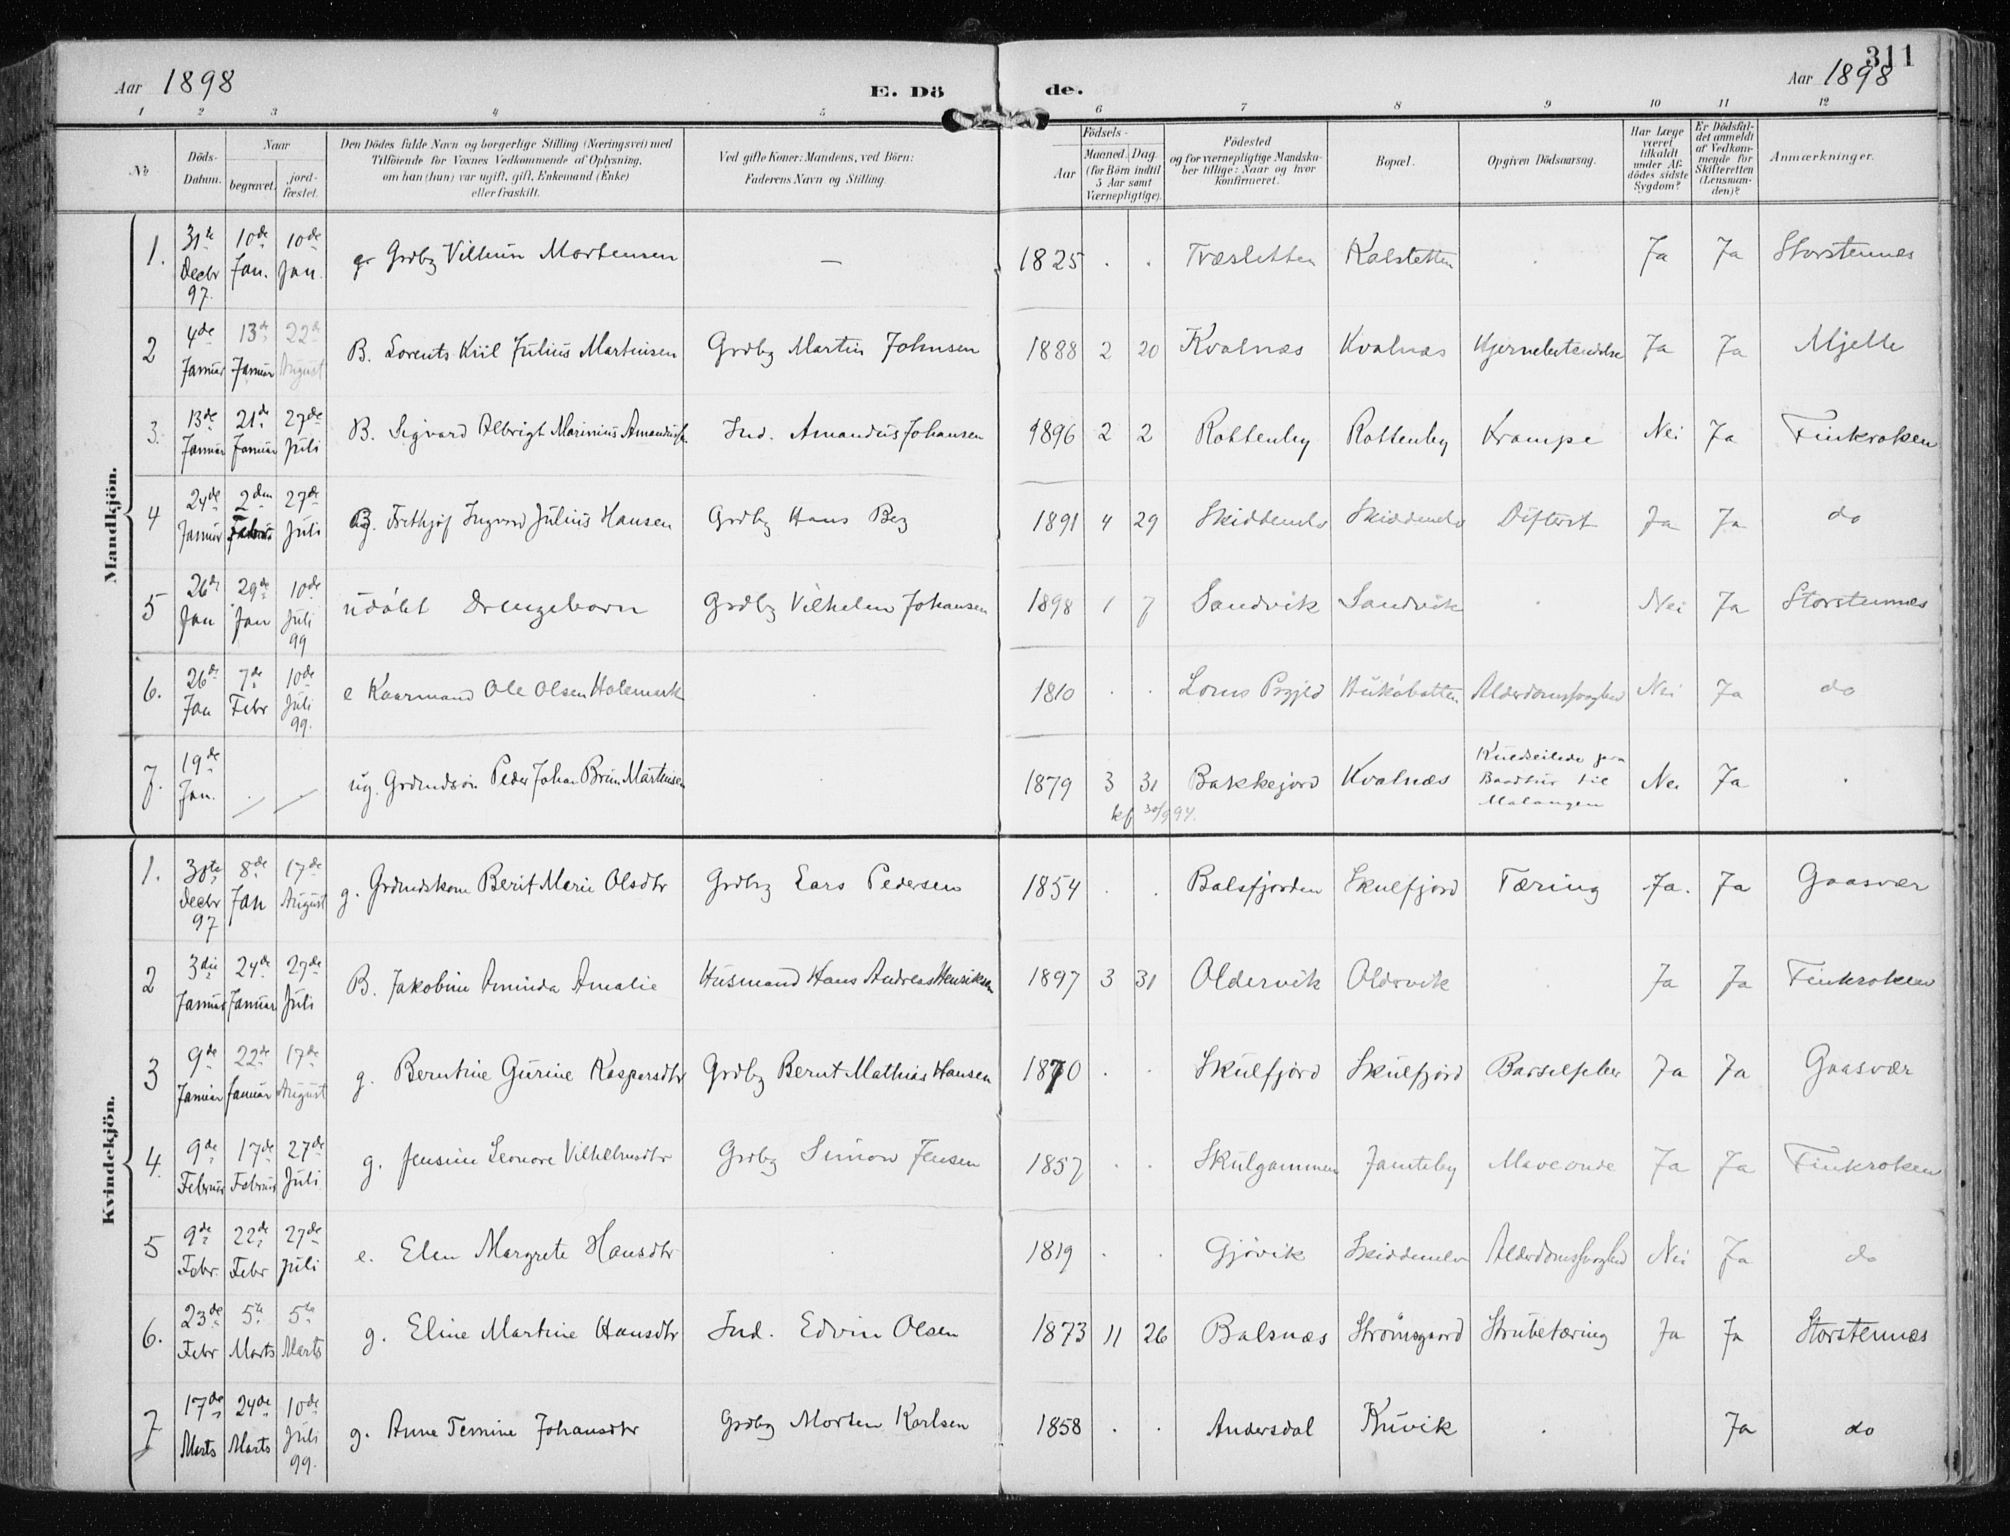 311
Aar 1898
E. Dö
de.
Aar 1898
1 2 3 4 5 6 7 8 9 10 11 12
No
Döds-
Datum.
Naar
begravet.
jord-
fæstet.
Den Dödes fulde Navn og borgerlige Stilling (Næringsvei) med
Tilföiende for Voxnes Vedkommende af Oplysning,
om han (hun) var ugift, gift, Enkemand (Enke)
eller fraskilt.
Ved gifte Koner: Mandens, ved Börn:
Faderens Navn og Stilling.
Födsels-
Aar
Maaned. Dag.
(for Börn indtil
5 Aar samt
Værnepligtige).
Födested
og for værnepligtige Mandska-
ber tillige: Naar og hvor
konfirmeret.
Bopæl.
Opgiven Dödsaarsag.
Har Læge
været
tilkaldt
under Af-
dödes sidste
Sygdom?
Er Dödsfal-
det anmeldt
af Vedkom-
mende for
Skifteretten
(Lensman-
den)?
Anmærkninger.
Mandkjön.
1. 31te Decbr 97. 10de Jan. 10de Jan. g. Grdbg Vilhum Mortensen — 1825 . . Træsletten Kalsletten . Ja Ja Storstennes
2 4de Januar 13de Januar 22de August B. Lorents Kiil Julius Martinsen Grdbg Martin Johnsen 1888 2 20 Kvalnæs Kvalnæs Hjernebetændelse Ja Ja Mjelle
3. 13de Januar 21de Januar 27de Juli B. Sigvard Albrigt Marinius Ind. Amandus Johansen 1896 2 2 Rottenby Rottenby Krampe Nei Ja Finkroken
4 24de Januar 2den Februar 27de Juli Frithjof Ingvard Julius Hansen Grdbg Hans 1891 4 29 Skiddenelv Skiddenelv Difterit Ja Ja do
5 26de Jan 29de Jan 10de Juli 99 udöbt Drengebarn Grdbg Vilhelm Johansen 1898 1 7 Sandvik Sandvik . Nei Ja Storstennes
6. 26de Jan 7de Febr 10de Juli 99. e Kaarmand Ole Olsen Holemark . 1810 . . Loms Prgjld Alderdomssvaghed Nei Ja do
7. 19de Jan. ug. Grdmdsön Peder Johan Brun Martinsen 1879 3 31 Bakkejord Kvalnæs Kuldseilede paa
Baadtur til
Malangen Nei Ja .
kf 30/9 94.
Kvindekjön.
1. Decbr 97 8de Jan 17de August g. Grdmdskone Berit Marie Olsdtr Grdbg Lars Pedersen 1854 . . Balsfjorden Skulfjord Tæring Ja. Ja Gaasvær
2 3die Januar 24de Januar 27de Juli B. Jakobine Aminda Amalie Husmand Hans Andreas Henriksen 1897 3 31 Oldervik Oldervik . Ja Ja Finkroken
3 9de Januar 22de Januar 17de August g. Berntine Gurine Kaspersdtr Grdbg Bernt Mathias Hansen 1870 . . Skulfjord Skulfjord Barselfeber Ja Ja Gaasvær
4. 9de Februar 17de Februar 27de Juli g. Jensine Leonore Vilhelmsdtr Grdbg Simon Jensen 1857 . . Skulgammen Jamteby Maveonde Ja Ja Finkroken
5 9de Febr. 22de Febr 27de Juli e. Elen Margrete Hansdtr . 1819 . . Gjövik Skiddenelv Alderdomssvaghed Nei Ja do
6. 23de Febr 5te Marts 5te Marts g. Eline Martine Hansdtr Ind. Edvin Olsen 1873 11 26 Balsnæs Strömsgaard Strubetæring Ja Ja Storstennes
7 17de Marts 24de Marts 10de Juli 99. g. Anne Temine Johansdtr Grdbg Morten Karlsen 1858 . . Andersdal . Ja do